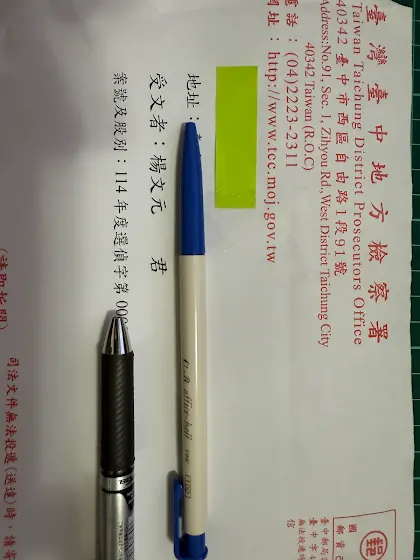 臺灣臺中地方檢察署
Taiwan Taichung District Prosecutors Office
40342 臺中市西區自由路1段91號
Address:No.91, Sec. 1, Zihyou Rd., West District Taichung City
40342 Taiwan (R.O.C)
電話：(04)2223-2311
網址：http://www.tcc.moj.gov.tw
地址：
受文者：楊文元 君
案號及股別：114 年度選偵字第 000
司法文件無法投遞(送達)時，請寄
O.B. office-ball
國
郵資已
臺中郵局
臺中字
無法投遞時
信
郵